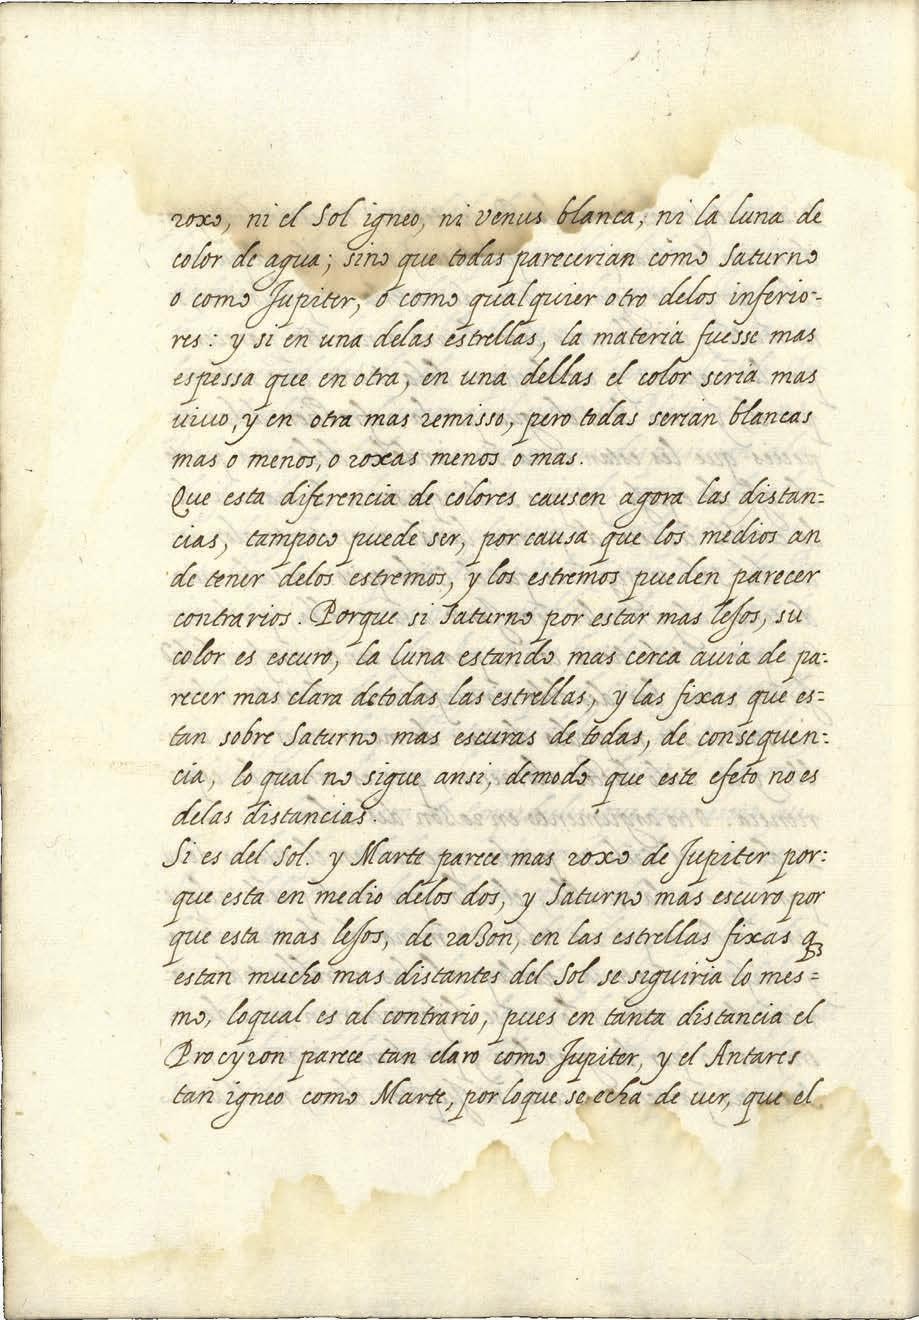 roxo, ni el Sol igneo, ni venus blanca, ni la luna de
color de agua; sino que todas parecerian como Saturno
o como Jupiter, o como qualquier otro delos inferio-
res: y si en una delas estrellas, la materia fuesse mas
espessa que en otra, en una dellas el color seria mas
vivo, y en otra mas remisso, pero todas serian blancas
mas o menos, o roxas menos o mas.
Que esta diferencia de colores causen agora las distan=
cias, tampoco puede ser, por causa que los medios an
de tener delos estremos, y los estremos pueden parecer
contrarios. Porque si Saturno por estar mas lejos, su
color es escuro, la luna estando mas cerca avia de pa=
recer mas clara de todas las estrellas, y las fixas que es=
tan sobre Saturno mas escuras de todas, de consequen=
cia, lo qual no sigue ansi, demodo que este efeto no es
delas distancias.
Si es del Sol. y Marte parece mas roxo de Jupiter por=
que esta en medio delos dos, y Saturno mas escuro por
que esta mas lejos, de razon, en las estrellas fixas q
estan mucho mas distantes del Sol se siguiria lo mes=
mo, loqual es al contrario, pues en tanta distancia el
Procyron parece tan claro como Jupiter, y el Antares
tan igneo como Marte, por loque se echa de ver, que el